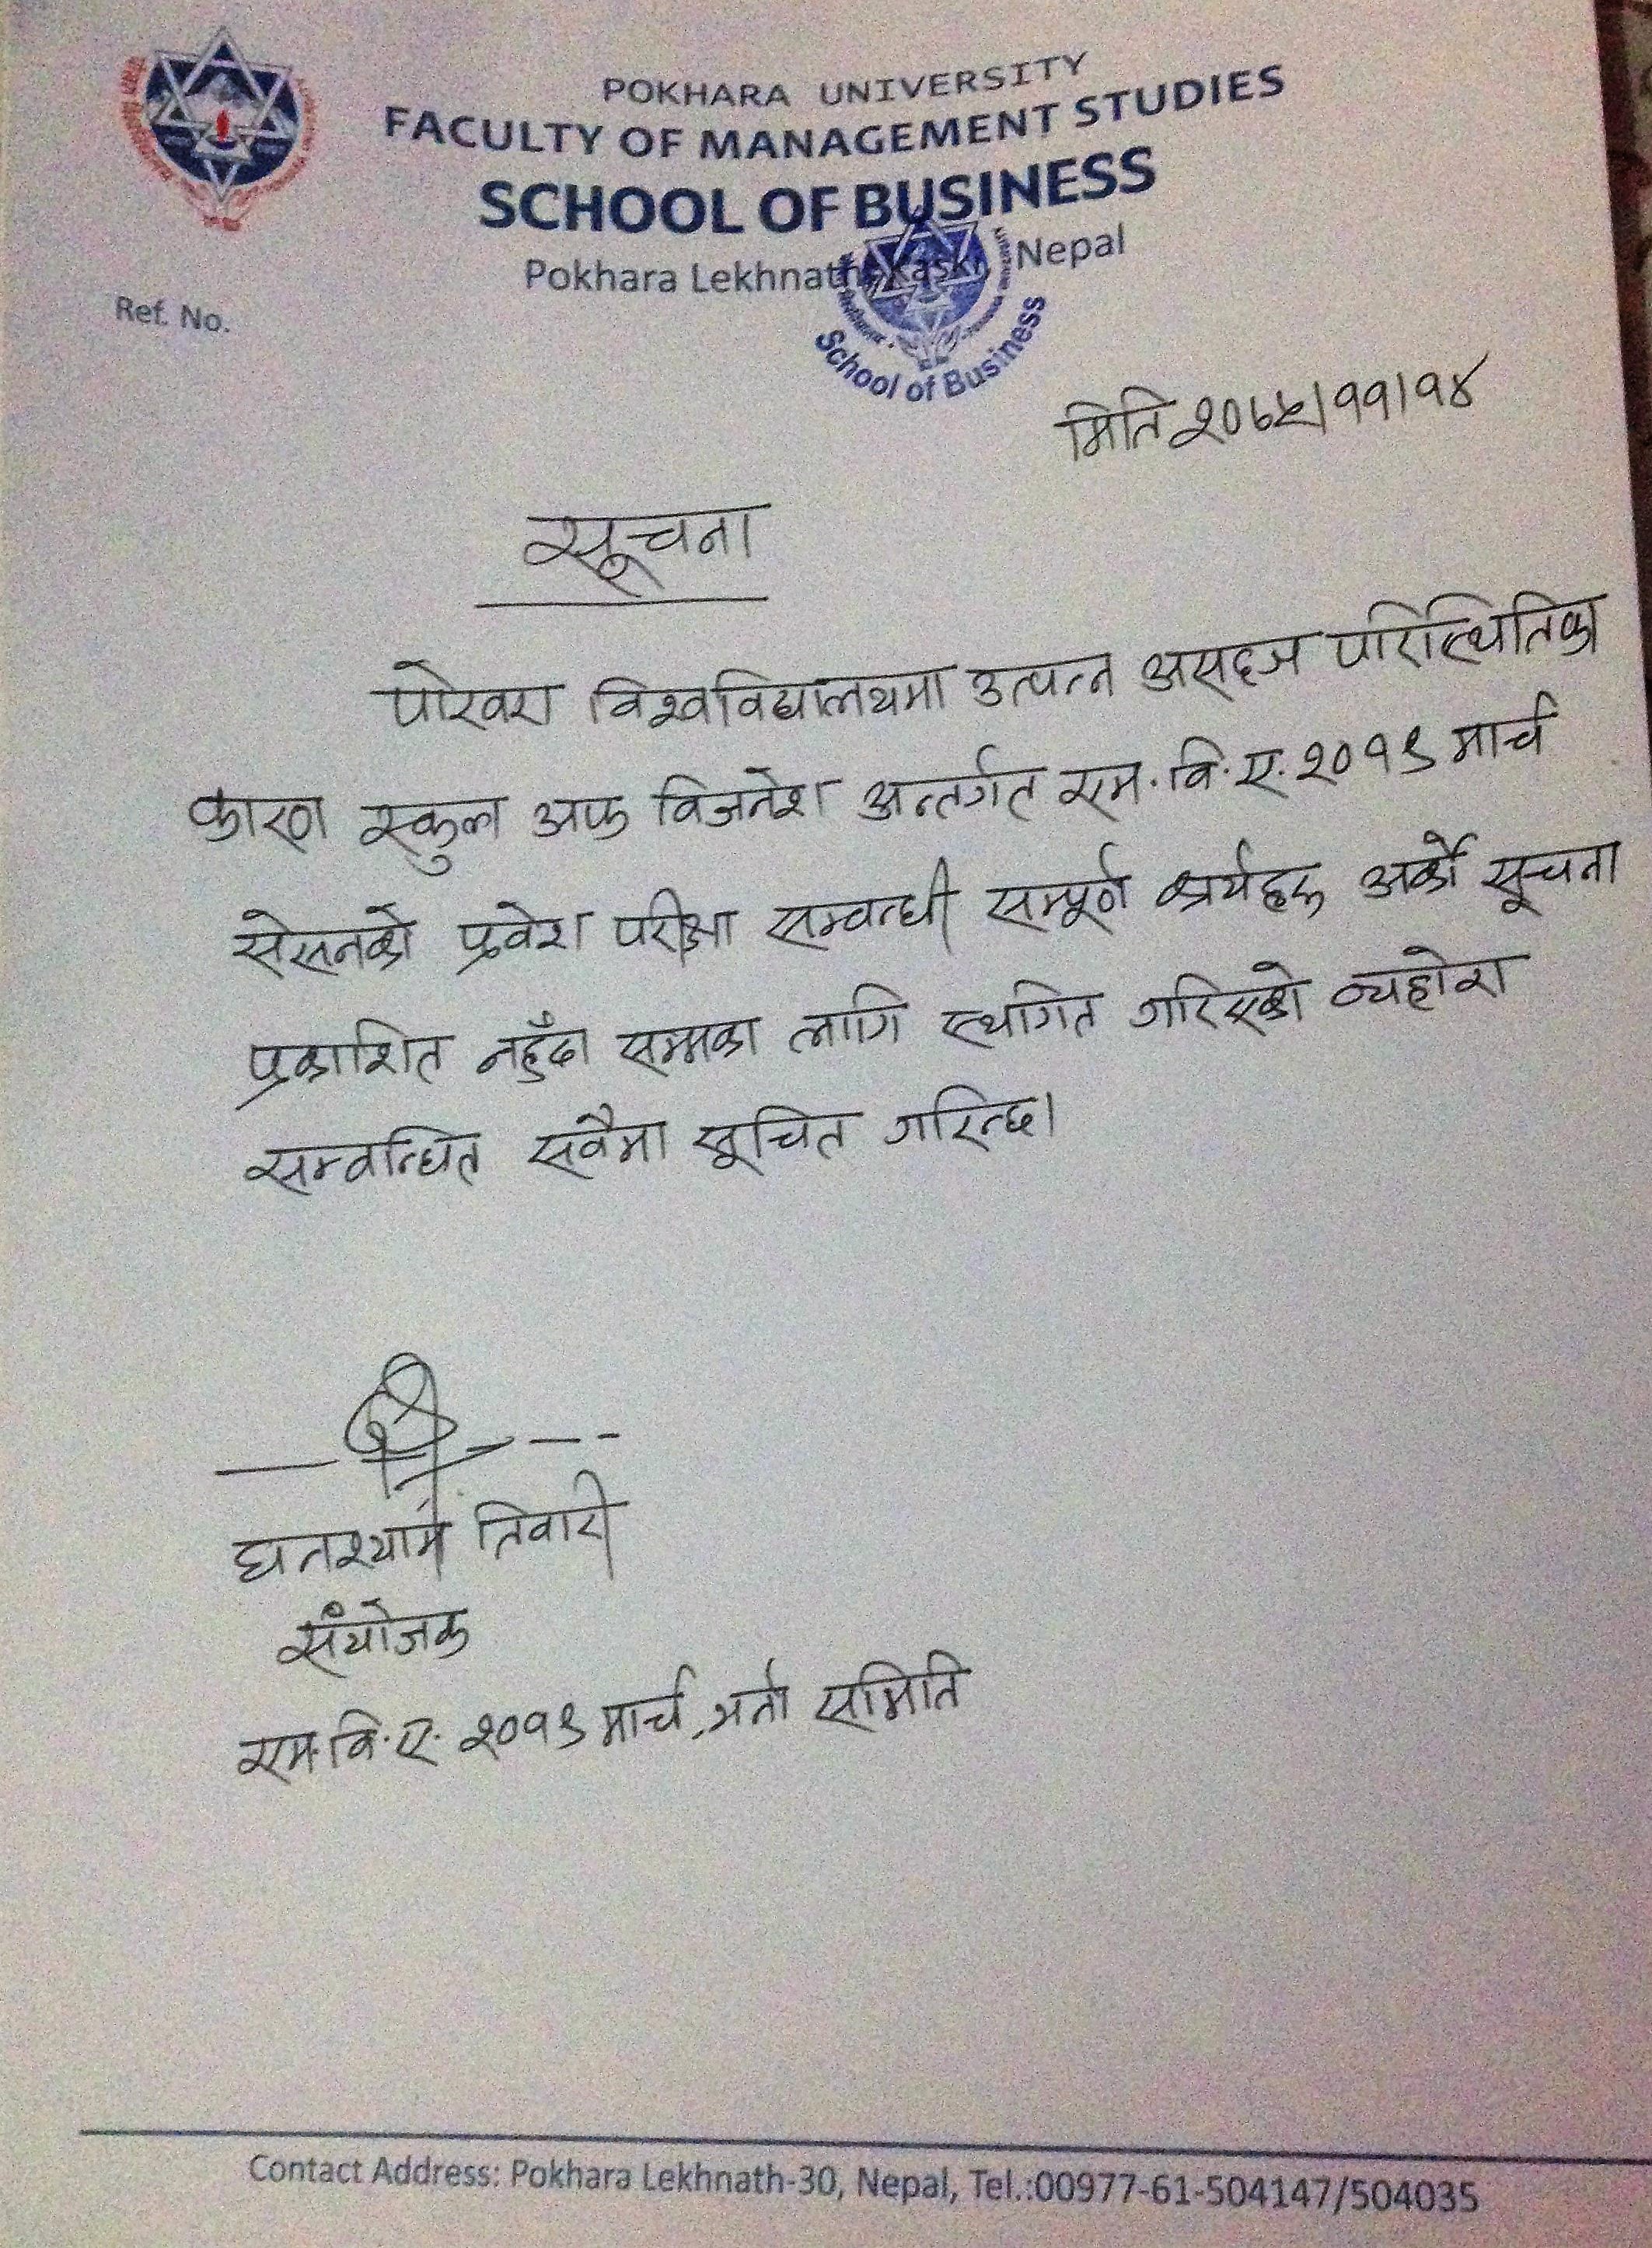 POKHARA UNIVERSITY
FACULTY OF MANAGEMENT STUDIES
SCHOOL OF BUSINESS
Pokhara Lekhnath, Kaski, Nepal
School of Business
Ref. No.
मिति २०७५।११।१४
सूचना
पोखरा विश्वविद्यालयमा उत्पन्न असहज परिस्थितिका
कारण स्कुल अफ विजनेश अन्तर्गत एम.वि.ए. २०१९ मार्च
सेसनको प्रवेश परीक्षा सम्वन्धी सम्पूर्ण कार्यहरु अर्को सूचना
प्रकाशित नहुँदा सम्मका लागि स्थगित गरिएको व्यहोरा
सम्वन्धित सवैमा सूचित गरिन्छ।
घनश्याम तिवारी
संयोजक
एम.वि.ए. २०१९ मार्च, भर्ना समिति
Contact Address: Pokhara Lekhnath-30, Nepal, Tel.:00977-61-504147/504035